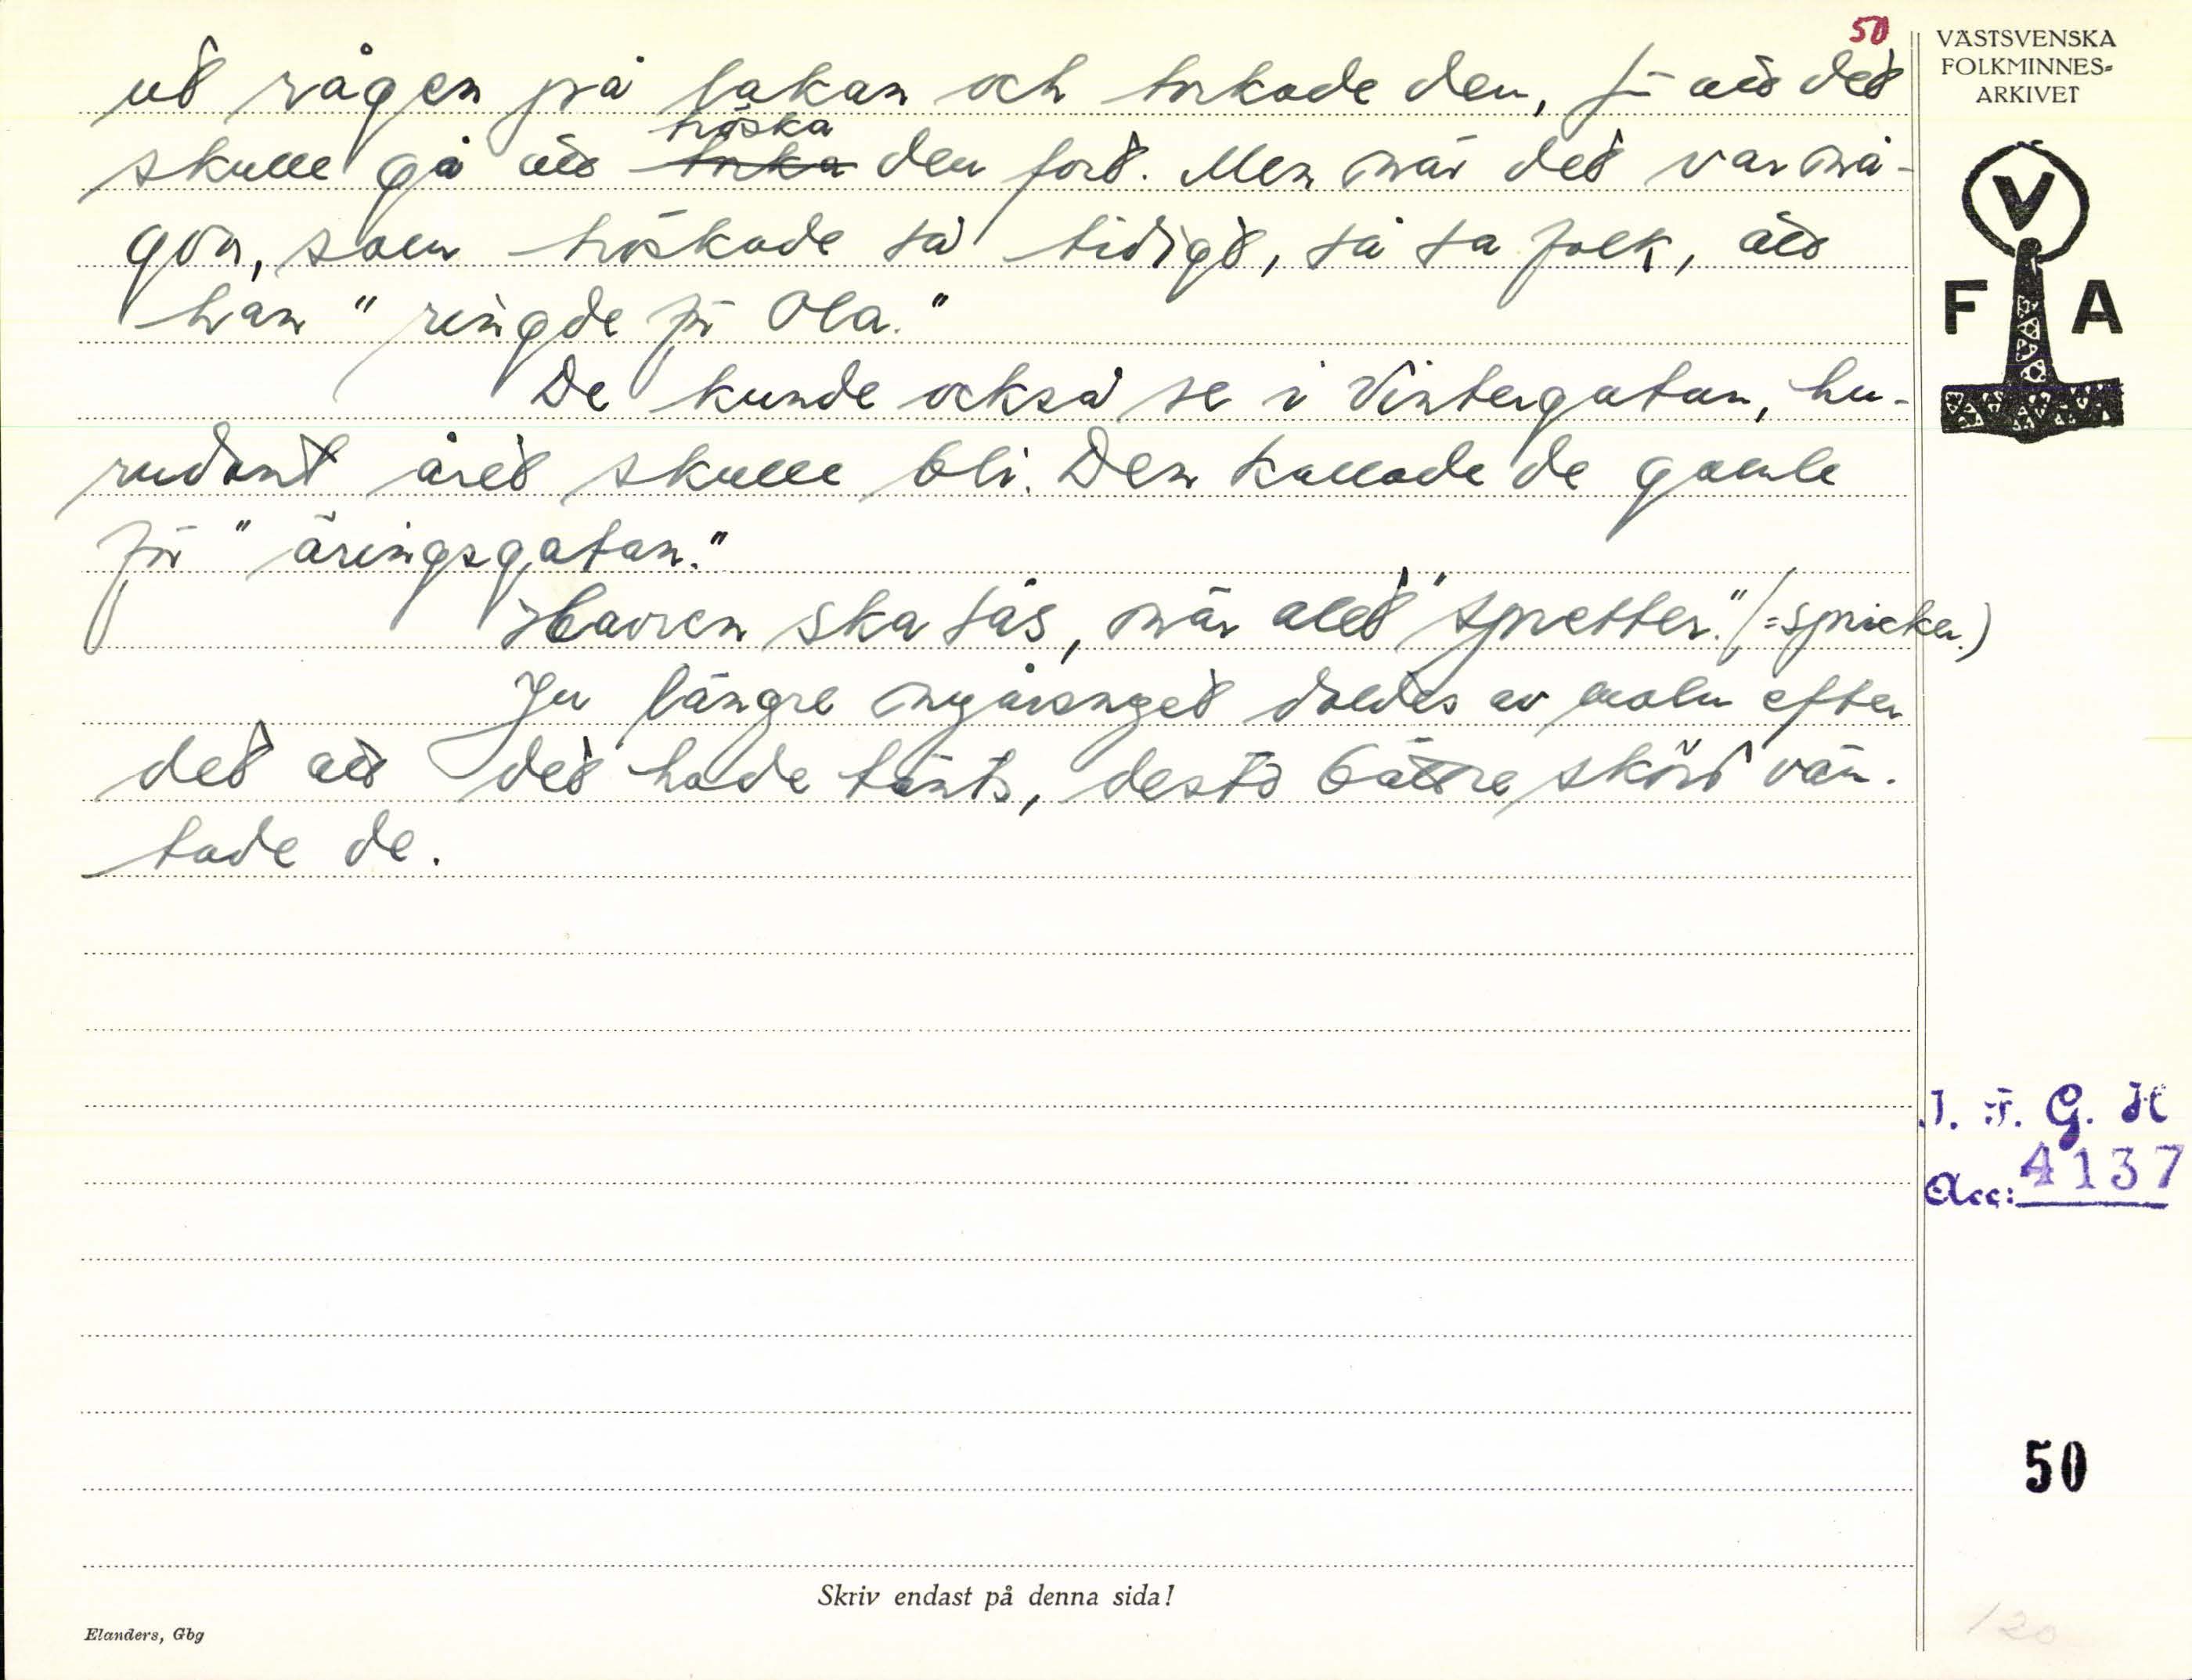 50
VÄSTSVENSKA
FOLKMINNES-
ARKIVET
ut rågen på lakan och torkade den, för att det
skulle gå att tröska den fort. Men när det var nå-
gon, som tröskade så tidigt, så sa folk, att
han "ringde för Ola."
De kunde också se i Vintergatan, hu-
rudant året skulle bli. Den kallade de gamle
för "äringsgatan."
Havren ska sås, när alet "spretter." (=spricker.)
Ju längre nyårsnyet doldes av moln efter
det att det hade tänts, desto bättre skörd vän-
tade de.
V
F A
I. F. G. H
Acc: 4137
50
Skriv endast på denna sida!
Elanders, Gbg
120